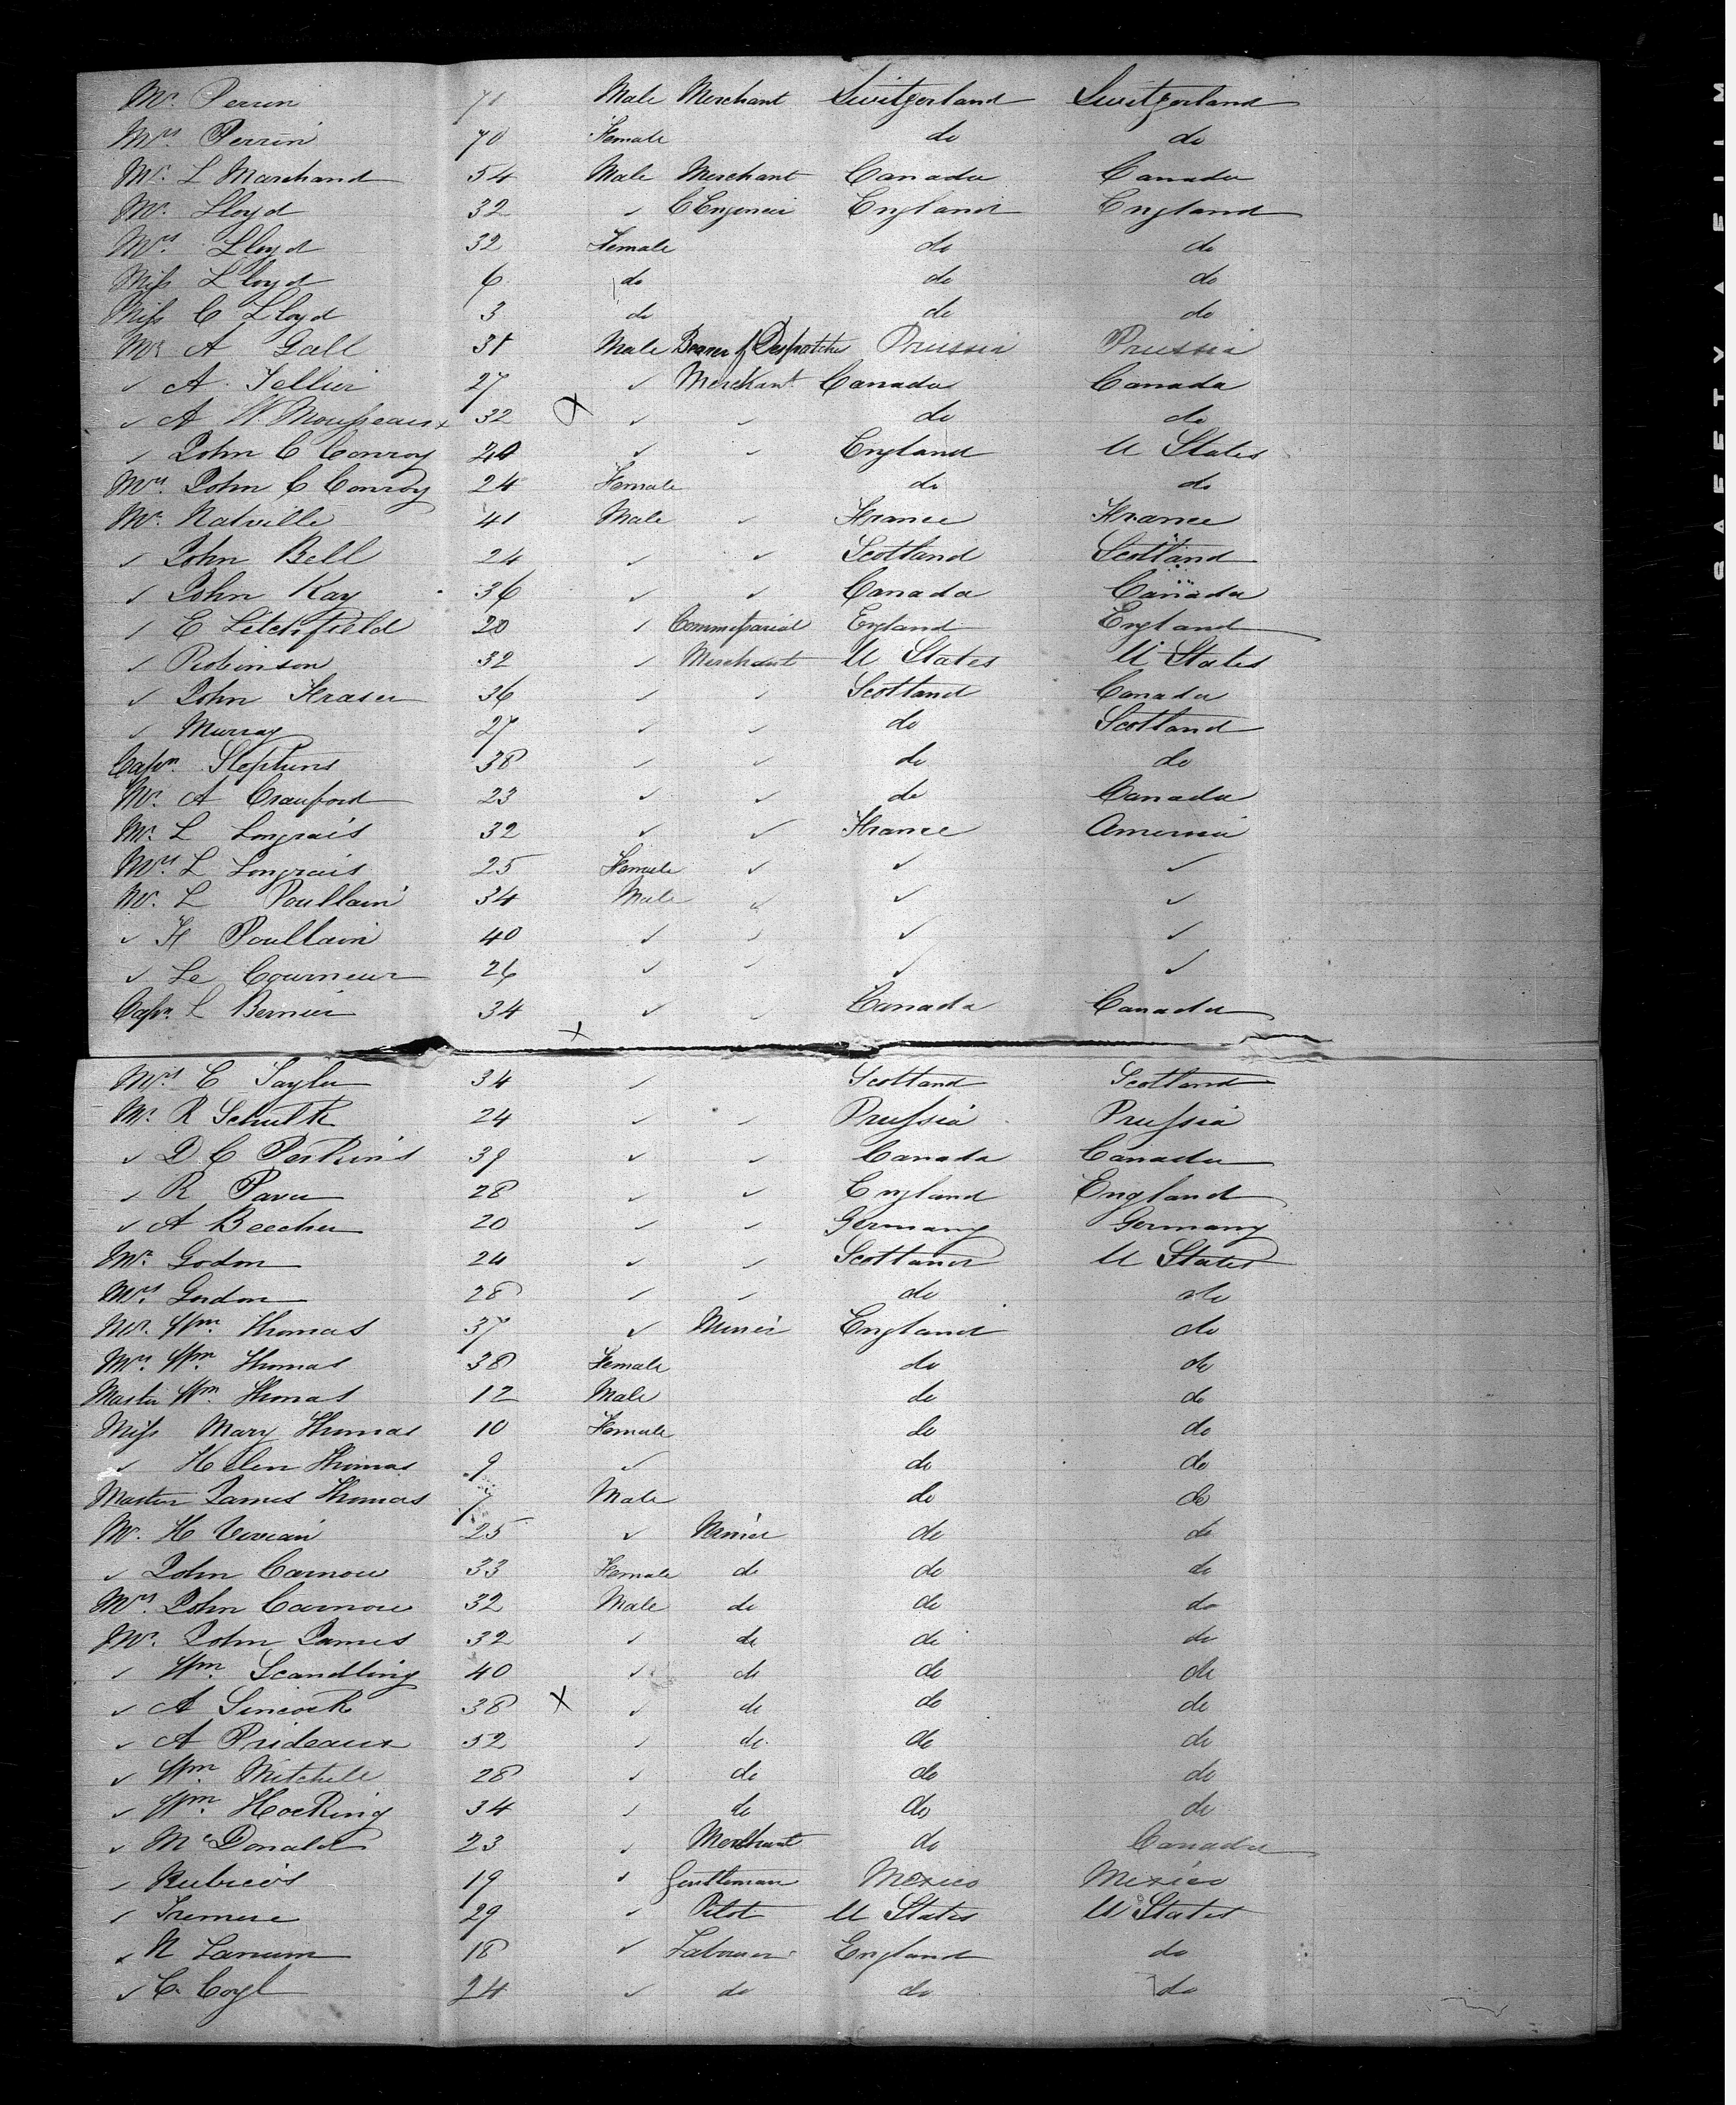 Mr. Perrin 71 Male Merchant Switzerland Switzerland
Mrs. Perrin 70 Female do do
Mr. L Marchand 54 Male Merchant Canada Canada
Mr. Lloyd 32 ✓ C Engineer England England
Mrs. Lloyd 32 Female do do
Miss Lloyd 6 do do do
Miss C Lloyd 3 do do do
Mr A Gall 31 Male Bearer of Despatches Prussia Prussia
✓ A. Tellier 27 ✓ Merchant Canada Canada
✓ A W. Mousseaux 32 X ✓ ✓ do do
✓ John C Conroy 24 ✓ ✓ England U States
Mrs. John C Conroy 24 Female do do
Mr. Natville 41 Male ✓ France France
✓ John Bell 24 ✓ ✓ Scotland Scotland
✓ John Kay 36 ✓ ✓ Canada Canada
✓ E Litchfield 20 ✓ Commissariat England England
✓ Robinson 32 ✓ Merchant U States U States
✓ John Fraser 36 ✓ ✓ Scotland Canada
✓ Murray 27 ✓ ✓ do Scotland
Capn. Stephens 38 ✓ ✓ do do
Mr. A Crauford 23 ✓ ✓ do Canada
Mr. L Longrais 32 ✓ ✓ France America
Mrs. L Longrais 25 Female ✓ ✓ ✓
Mr. L Poullain 34 Male ✓ ✓ ✓
✓ H Poullain 40 ✓ ✓ ✓ ✓
✓ Le Courneur 26 ✓ ✓ ✓ ✓
Capn. L Bernier 34 ✓ ✓ Canada Canada
X
Mrs C Taylor 34 ✓ Scotland Scotland
Mr. R Schultk 24 ✓ ✓ Prussia Prussia
✓ D. C Perkins 39 ✓ ✓ Canada Canada
✓ R Paver 28 ✓ ✓ England England
✓ A Beecher 20 ✓ ✓ Germany Germany
Mr. Godon 24 ✓ ✓ Scotland U States
Mrs. Gordon 28 ✓ ✓ do do
Mr. Wm. Thomas 37 ✓ Miner England do
Mrs. Wm. Thomas 38 Female do do
Master Wm. Thomas 12 Male do do
Miss Mary Thomas 10 Female do do
✓ Helen Thomas 9 ✓ do do
Master James Thomas 7 Male do do
Mr. H Vivian 25 ✓ Miner do do
✓ John Carnow 33 Female do do do
Mrs. John Carnow 32 Male do do do
Mr. John James 32 ✓ do do do
✓ Wm. Scandling 40 ✓ do do do
✓ A Sincock 38 X ✓ do do do
✓ A Prideaux 52 ✓ do do do
✓ Wm. Mitchele 28 ✓ do do do
✓ Wm. Hocking 34 ✓ do do do
✓ McDonald 23 ✓ Merchant do Canada
✓ Rubicos 19 ✓ Gentleman Mexico Mexico
✓ Tremere 29 ✓ Pilot U States U States
✓ N Lanum 18 ✓ Labourer England do
✓ C. Coyl 24 ✓ do do do
SAFETY FILM